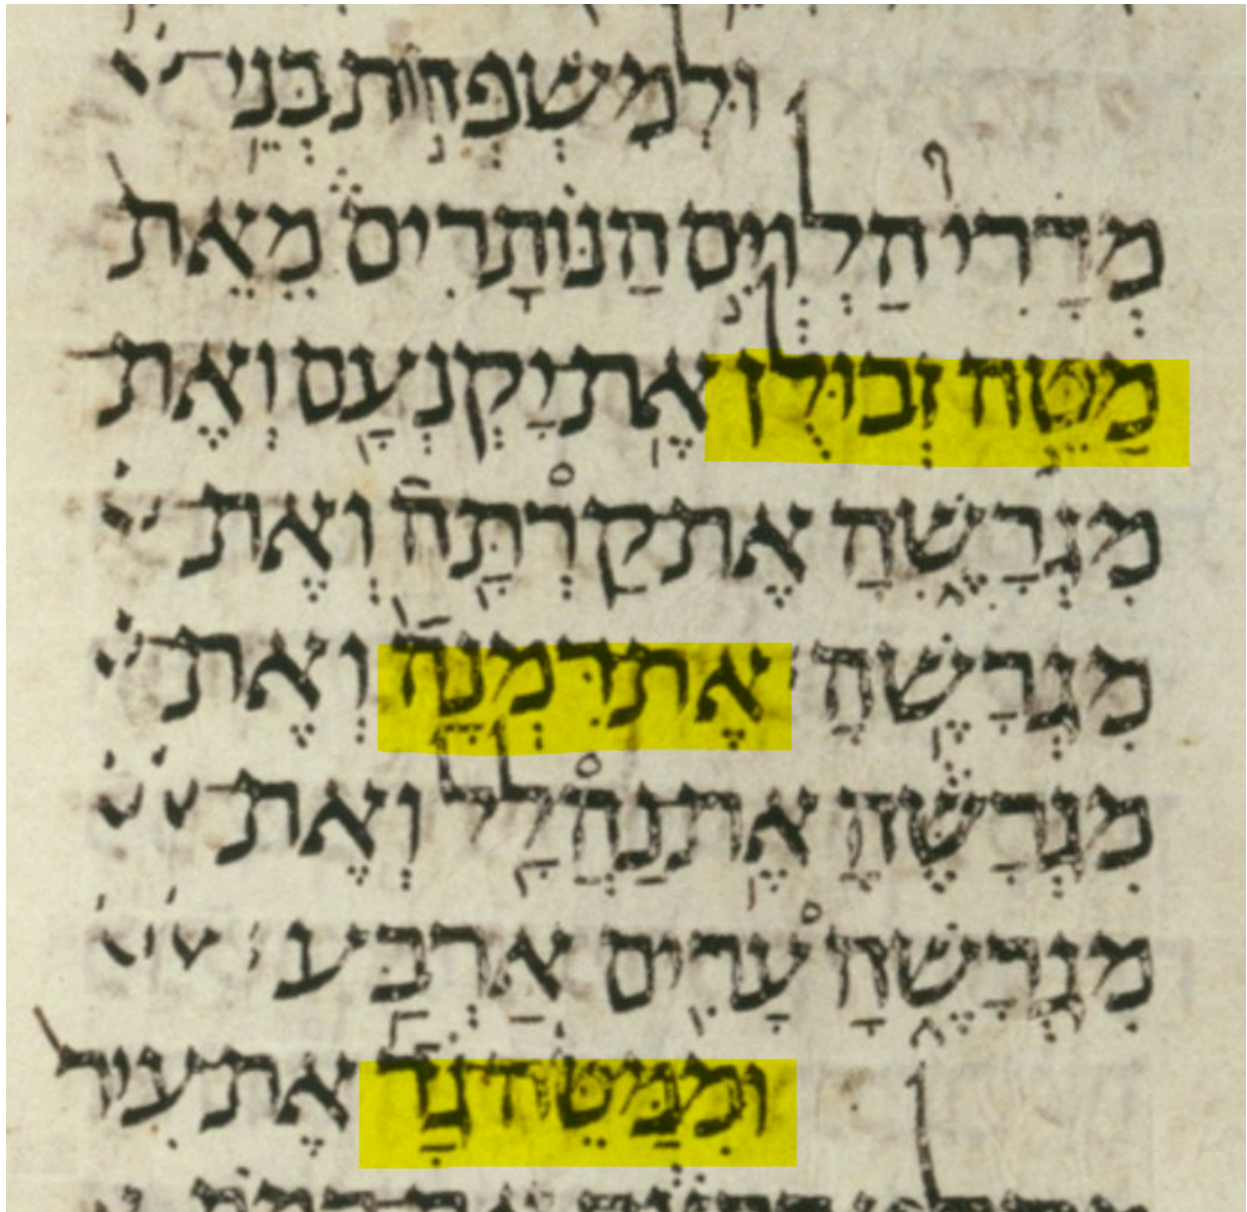 וּלְמִשְׁפְּחוֹת בְּנֵי
מְרָרִי הַלְוִיִּם הַנּוֹתָרִים מֵאֵת
מַטֵּה זְבוּלֻן אֶת יָקְנְעָם וְאֶת
מִגְרָשֶׁהָ אֶת קַרְתָּה וְאֶת
מִגְרָשֶׁהָ אֶת דִּמְנָה וְאֶת
מִגְרָשֶׁהָ אֶת נַהֲלָל וְאֶת
מִגְרָשֶׁהָ עָרִים אַרְבַּע
וּמִמַּטֵּה גָד אֶת עִיר